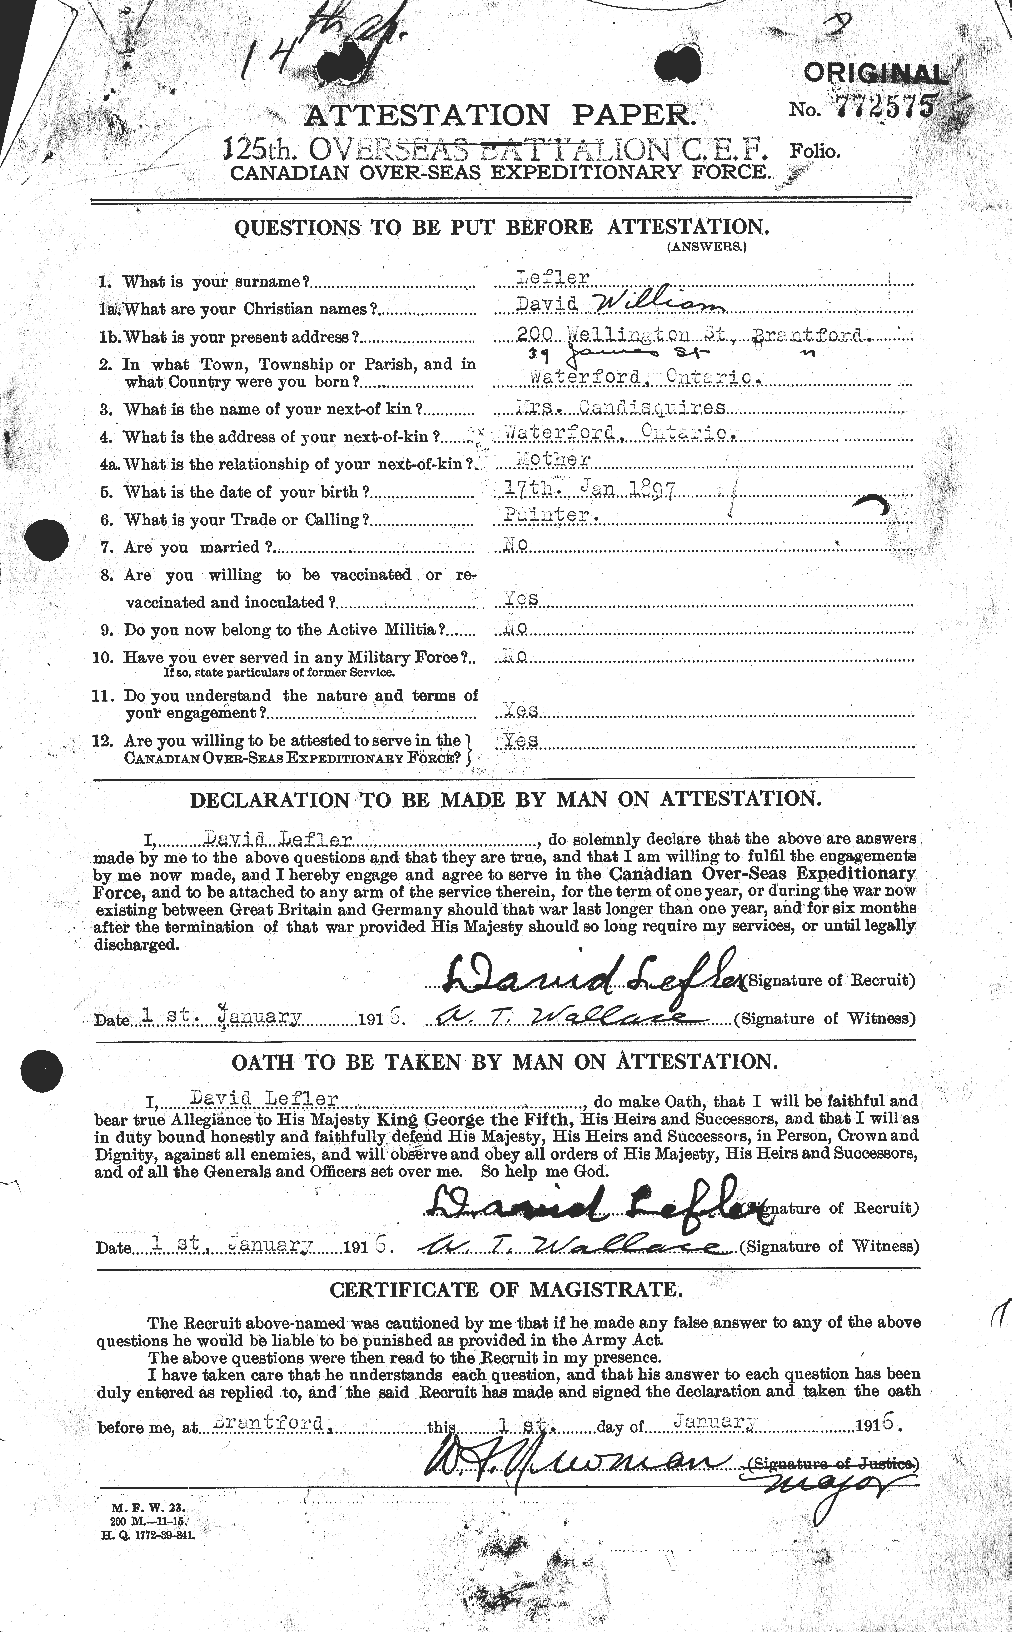 14th
ORIGINAL
No. 772575
ATTESTATION PAPER.
125th. OVERSEAS BATTALION C.E.F. Folio.
CANADIAN OVER-SEAS EXPEDITIONARY FORCE.
QUESTIONS TO BE PUT BEFORE ATTESTATION.
(ANSWERS.)
1. What is your surname? Lefler
1a. What are your Christian names? David William
1b. What is your present address? 200 Wellington St, Brantford.
39 James St "
2. In what Town, Township or Parish, and in
what Country were you born? Waterford, Ontario.
3. What is the name of your next-of kin? Mrs. Candisquires
4. What is the address of your next-of-kin? Waterford, Ontario.
4a. What is the relationship of your next-of-kin? Mother
5. What is the date of your birth? 17th. Jan 1897
6. What is your Trade or Calling? Painter.
7. Are you married? No
8. Are you willing to be vaccinated or re-
vaccinated and inoculated? Yes
9. Do you now belong to the Active Militia? No
10. Have you ever served in any Military Force? No
If so, state particulars of former Service.
11. Do you understand the nature and terms of
your engagement? Yes
12. Are you willing to be attested to serve in the } Yes
CANADIAN OVER-SEAS EXPEDITIONARY FORCE? }
DECLARATION TO BE MADE BY MAN ON ATTESTATION.
I, David Lefler, do solemnly declare that the above are answers
made by me to the above questions and that they are true, and that I am willing to fulfil the engagements
by me now made, and I hereby engage and agree to serve in the Canadian Over-Seas Expeditionary
Force, and to be attached to any arm of the service therein, for the term of one year, or during the war now
existing between Great Britain and Germany should that war last longer than one year, and for six months
after the termination of that war provided His Majesty should so long require my services, or until legally
discharged.
David Lefler (Signature of Recruit)
Date 1 st. January 1916. A. T. Wallace (Signature of Witness)
OATH TO BE TAKEN BY MAN ON ATTESTATION.
I, David Lefler, do make Oath, that I will be faithful and
bear true Allegiance to His Majesty King George the Fifth, His Heirs and Successors, and that I will as
in duty bound honestly and faithfully defend His Majesty, His Heirs and Successors, in Person, Crown and
Dignity, against all enemies, and will observe and obey all orders of His Majesty, His Heirs and Successors,
and of all the Generals and Officers set over me. So help me God.
David Lefler (Signature of Recruit)
Date 1 st, January 1916. A. T. Wallace (Signature of Witness)
CERTIFICATE OF MAGISTRATE.
The Recruit above-named was cautioned by me that if he made any false answer to any of the above
questions he would be liable to be punished as provided in the Army Act.
The above questions were then read to the Recruit in my presence.
I have taken care that he understands each question, and that his answer to each question has been
duly entered as replied to, and the said Recruit has made and signed the declaration and taken the oath
before me, at Brantford, this 1 st. day of January 1916.
Newman (Signature of Justice)
Major
M. F. W. 23.
200 M.—11-15.
H. Q. 1772-39-841.